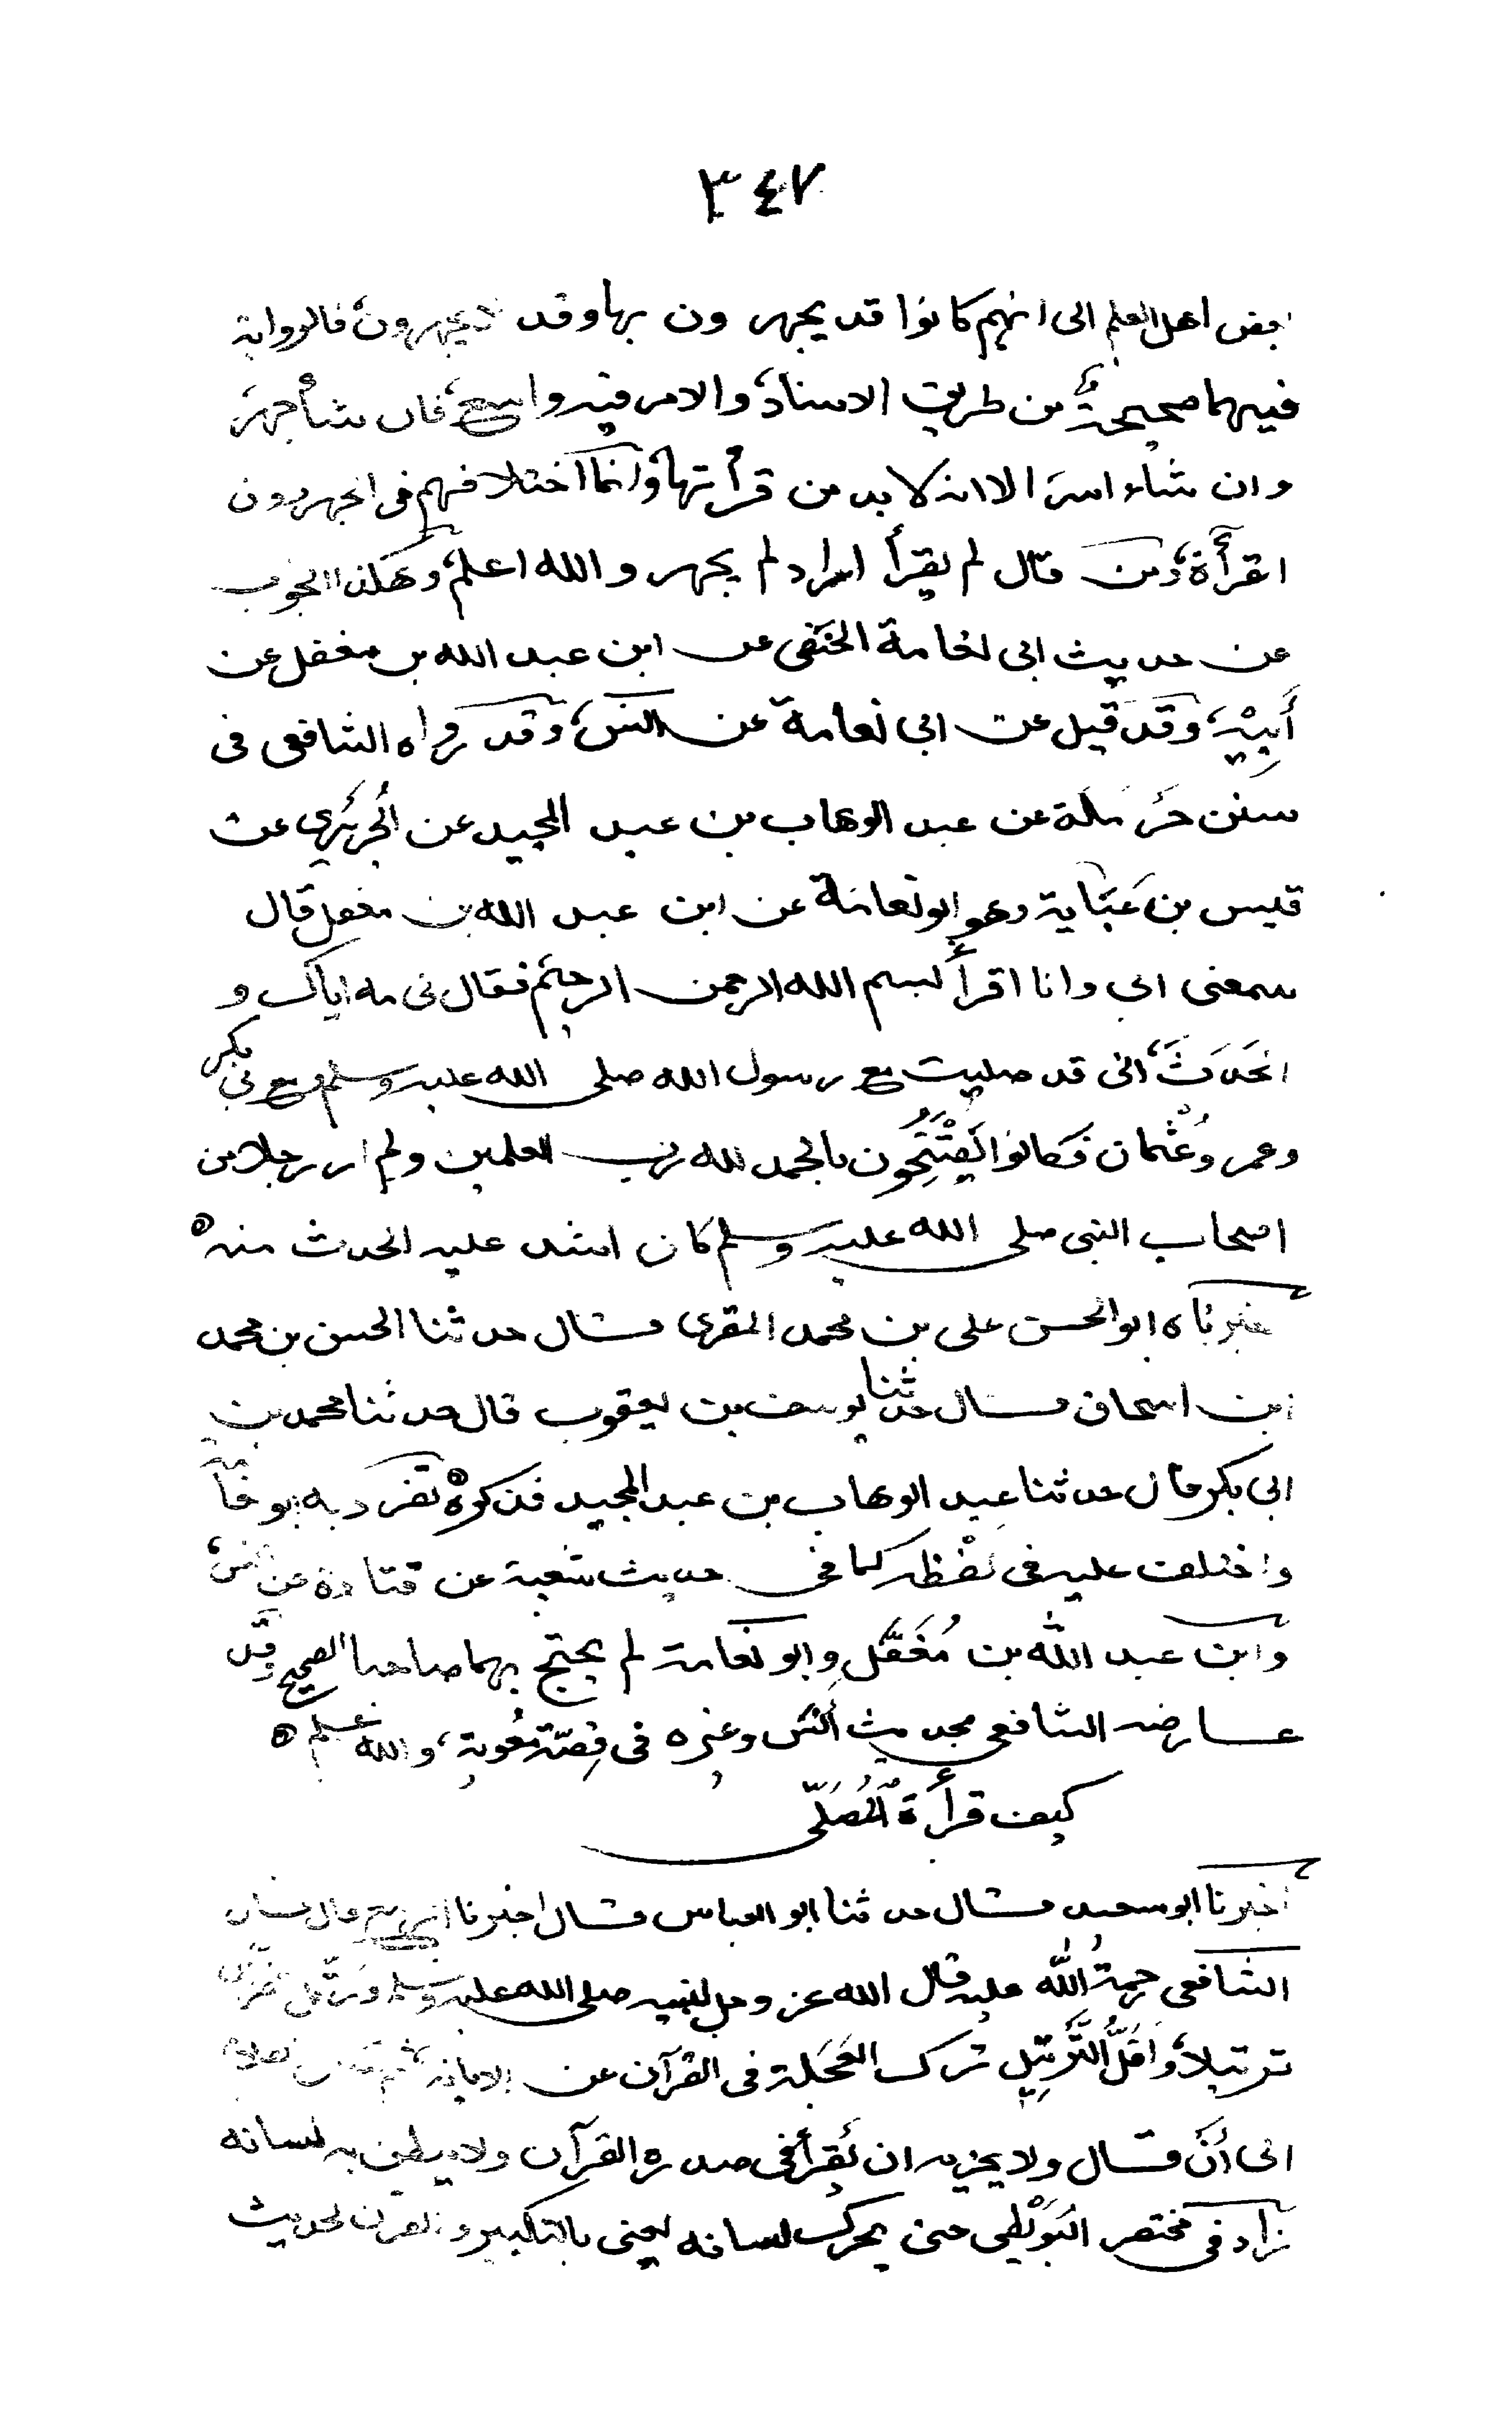 ٣٤٧
بعض اهل العلم الى انهم كانوا قد يجهرون بها وقد لا يجهرون، فالرواية
فيهما صحيحة من طريق الاسناد، والامر فيه واسع، فان شأ جهر،
وان شاء اسر الا انه لا بد من قرأتها، وانما اختلافهم فى الجهر دون
القرأة، ومن قال لم يقرأ اراد لم يجهر والله اعلم، وهكذا الجوب
عن حديث ابى نعامة الحنفى عن ابن عبد الله بن مغفل عن
أبِيْهِ، وقد قيل عن ابى نعامة عن انس، وقد رواه الشافعى فى
سنن حَرْملة عن عبد الوهاب بن عبد المجيد عن الجُرَيْرِى عن
قيس بن عَبَاية وهو ابو نعامة عن ابن عبد الله بن مغفل قال
سمعنى ابى وانا اقرأ بسم الله الرحمن الرحيم فقال لى مه اياك و
الحَدَثَ، انى قد صليت مع رسول الله صلى الله عليه وسلم ومع بى بكر
وعمر وعُثْمان فكانوا يَفْتَتِحُون بالحمد لله رب العلمين ولم ار رجلا من
اصحاب النبى صلى الله عليه وسلم كان اشد عليه الحدث منه ه
خبرناه ابو الحسن على بن محمد المقرى قال حدثنا الحسن بن محمد
بن اسحاق قال حدثنا يوسف بن يعقوب قال حدثنا محمد بن
ابى بكر قال حدثنا عبد الوهاب بن عبد المجيد فذكره ه تفرد به ابو نعامة
واختلف عليه فى لفظه كما فى حديث شعبة عن قتادة عن انس،
وابن عبد الله بن مُغَفَّل وابو نعامة لم يحتج بهما صاحبا الصحيح وقد
عارضه الشافعى بحديث أنس وغيره فى قِصّة معوية، والله اعلم ه
كيف قرأة المُصَلّى
اخبرنا ابو سعيد قال حدثنا ابو العباس قال اخبرنا الربيع قال قال
الشافعى رحمةُ الله عليه قال الله عز وجل لنبيه صلى الله عليه وسلم ورتل القرآن
ترتيلا، وَاقَلُّ التَّرْتِيل ترك العَجَلة فى القرآن عن الابانة،
الى أنْ قال ولا يجزيه ان يَقرأ فى صدره القرآن ولا ينطق به لسانه
زاد فى مختصر البُوَيْطى حتى يحرك لسانه يعنى بالتكبير والقرآن لحديث